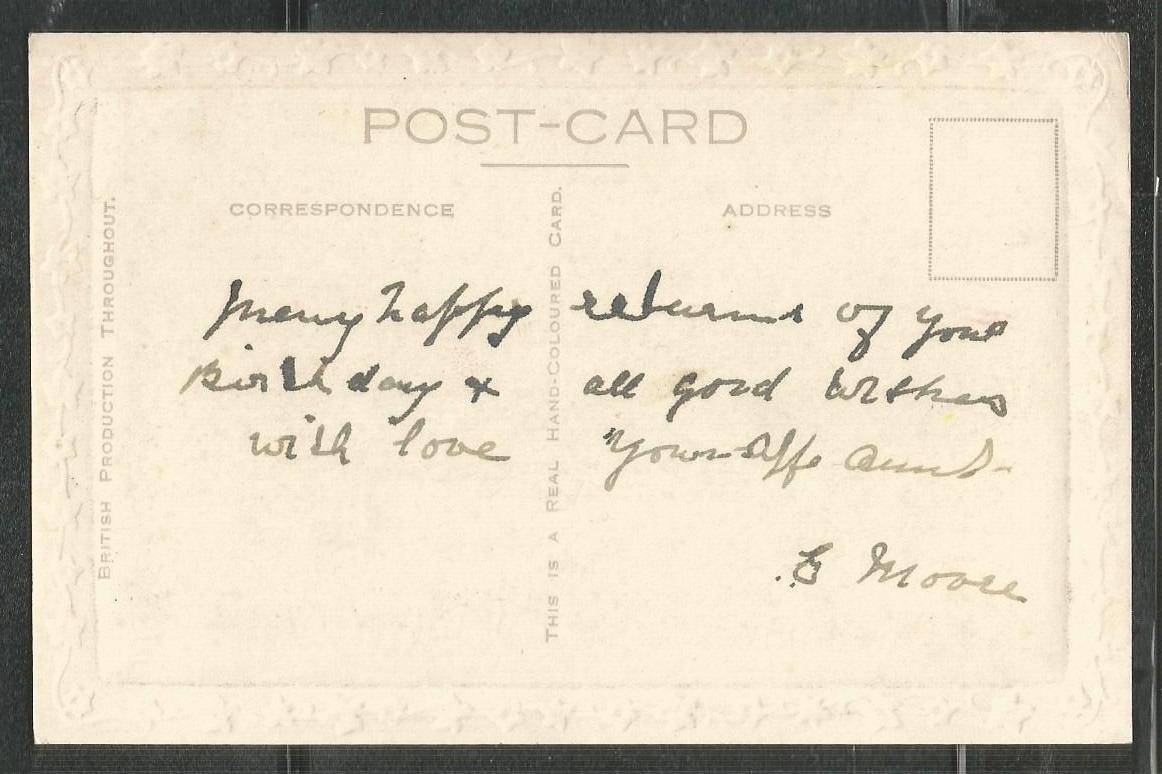 POST-CARD
CORRESPONDENCE
ADDRESS
BRITISH PRODUCTION THROUGHOUT.
THIS IS A REAL HAND-COLOURED CARD.
Many happy returns of your
Birthday & all good wishes
with love Your Affe Aunt
E Moore